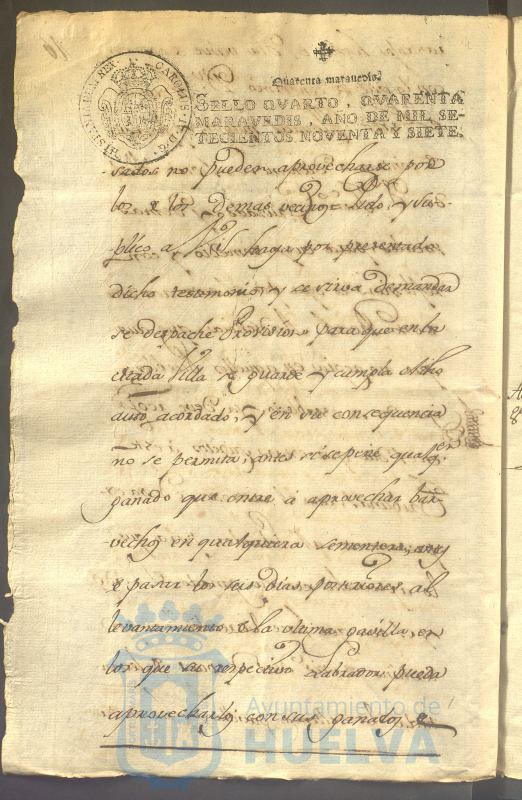 Quarenta maravedis.
SELLO QVARTO, QVARENTA
MARAVEDIS, AÑO DE MIL SE-
TECIENTOS NOVENTA Y SIETE.
CAROLUS IV D G HISPANIAR REX
sados no pueden aprovecharse por
los demas vecinos Pido y su-
plico a haya por presentado
dicho testimonio, y se sirva demandar
se despache Provision para que en la
citada Villa se guarde y cumpla dicho
auto acordado, y en su consequencia
no se permita, antes si se pene qualqr.
ganado que entre à aprovechar bar-
vechos en qualquiera sementera, antes
de pasar los seis dias posteriores al
levantamiento de la ultima gavilla, en
los que su respectivo Labrador pueda
aprovecharlos con sus ganados
Ayuntamiento de
HUELVA